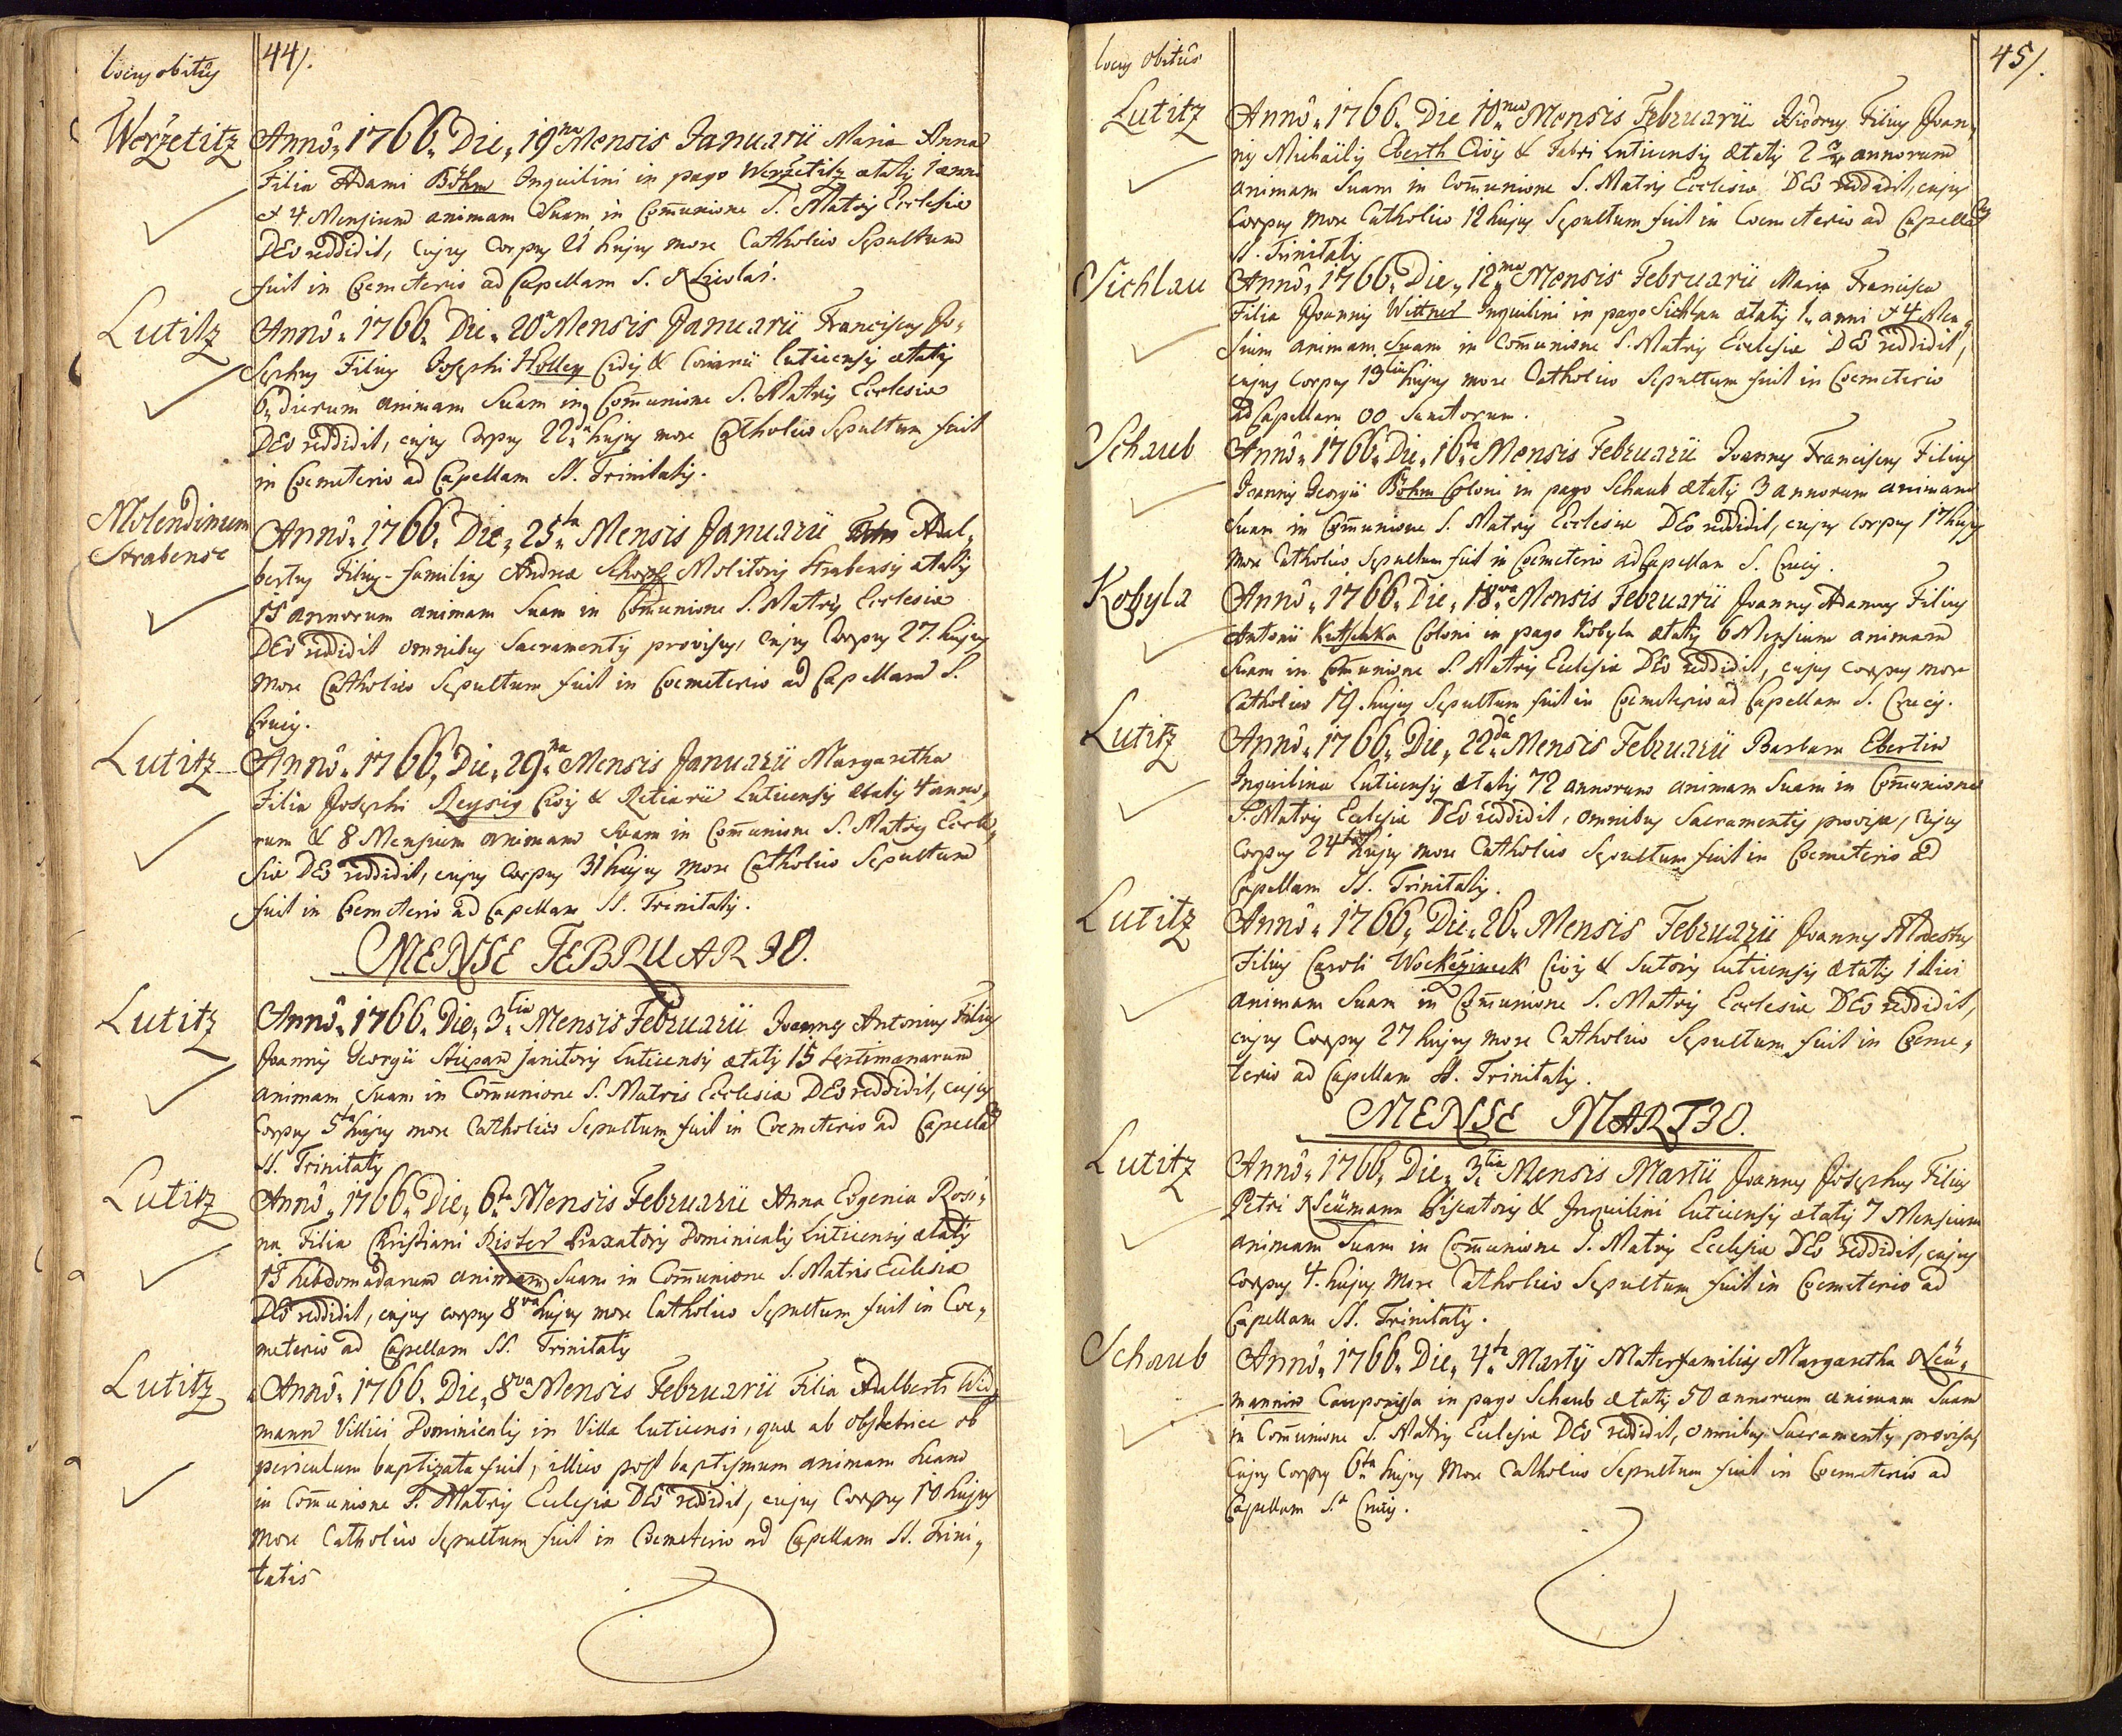 locus obitûs
44/.
Weržetitz
Annô. 1766. Die. 19na Mensis Januarii Maria Anna
Filia Adami Böhm Inquilini in pago Weržetitz ætatis 1 anni
et 4 Mensium animam Suam in Com̄unione S. Matris Ecclesiæ
DEo reddidit, cujus Corpus 21 hujus more Catholico Sepultum
fuit in Coemeterio ad Capellam S. Nicolai.
Lutitz
Annô. 1766. Die. 20a Mensis Januarii Franciscus Jo-
sephus Filius Josephi Holley Civis & Coriarii Luticensis ætatis
6. dierum animam Suam in Com̄unione S. Matris Ecclesiæ
DEo reddidit, cujus Corpus 22da hujus more Catholico Sepultum fuit
in Coemeterio ad Capellam SS. Trinitatis.
Molendinum
Strabense
Annô. 1766. Die. 25ta Mensis Januarii Adal-
bertus Filius-familias Andreæ Schopf Molitoris Strabensis ætatis
15 annorum animam Suam in Com̄unione S. Matris Ecclesiæ
DEo reddidit omnibus Sacramentis provisus, cujus Corpus 27. hujus
More Catholico Sepultum fuit in Coemeterio ad Capellam S.
Crucis.
Lutitz
Annô. 1766. Die. 29na Mensis Januarii Margaretha
Filia Josephi Reysig Civis & Retiarii Luticensis ætatis 4 anno-
rum & 8 Mensium animam Suam in Com̄unione S. Matris Eccle-
siæ DEo reddidit, cujus Corpus 31 hujus More Catholico Sepultum
fuit in Coemeterio ad Capellam SS. Trinitatis.
MENSE FEBRUARIO.
Lutitz
Annô. 1766. Die. 3tia Mensis Februarii Joannes Antonius Filius
Joannis Georgii Stiepan janitoris Luticensis ætatis 15 Septimanarum
animam Suam in Com̄unione S. Matris Ecclesiæ DEo reddidit, cujus
Corpus 5ta hujus more Catholico Sepultum fuit in Coemeterio ad Capellam
SS. Trinitatis
Lutitz
Annô. 1766. Die. 6ta Mensis Februarii Anna Eugenia Rosi-
na Filia Christiani Rister Braxatoris Dominicalis Luticensis ætatis
15 hebdomadarum animam Suam in Com̄unione S. Matris Ecclesiæ
DEo reddidit, cujus corpus 8va hujus more Catholico Sepultum fuit in Coe-
meterio ad Capellam SS. Trinitatis
Lutitz
Annô. 1766. Die. 8va Mensis Februarii Filia Adalberti Wid-
mann Villici Dominicalis in Villa Luticensi, quæ ab obstetrice ob
periculum baptizata fuit, illico post baptismum animam Suam
in Com̄unione S. Matris Ecclesiæ DEo reddidit, cujus Corpus 10. hujus
More Catholico Sepultum fuit in Coemeterio ad Capellam SS. Trini-
tatis
locus obitûs
45/.
Lutitz
Annô. 1766. Die 10ma Mensis Februarii Isidorus Filius Joan-
nis Michaëlis Eberth Civis & Fabri Luticensis ætatis 2 annorum
animam Suam in Com̄unione S. Matris Ecclesiæ DEo reddidit, cujus
Corpus More Catholico 12 hujus Sepultum fuit in Coemeterio ad Capellam
SS. Trinitatis
Sichlau
Annô. 1766. Die. 12ma Mensis Februarii Maria Francisca
Filia Joannis Wittner Inquilini in pago Sichlau ætatis 1. anni & 4 Men-
sium animam Suam in Com̄unione S. Matris Ecclesiæ DEo reddidit,
cujus Corpus 13tia hujus more Catholico Sepultum fuit in Coemeterio
ad Capellam OO Sanctorum.
Schaub
Annô. 1766. Die. 16ta Mensis Februarii Joannes Franciscus Filius
Joannis Georgii Böhm Coloni in pago Schaub ætatis 3 annorum animam
Suam in Com̄unione S. Matris Ecclesiæ DEo reddidit, cujus Corpus 17 hujus
More Catholico Sepultum fuit in Coemeterio ad Capellam S. Crucis.
Kobyla
Annô. 1766. Die. 18va Mensis Februarii Joannes Adamus Filius
Antonii Kutschka Coloni in pago Kobyla ætatis 6 Mensium animam
Suam in Com̄unione S. Matris Ecclesiæ DEo reddidit, cujus corpus more
Catholico 19. hujus Sepultum fuit in Coemeterio ad Capellam S. Crucis.
Lutitz
Annô. 1766. Die. 22da Mensis Februarii Barbara Ebertin
Inquilina Luticensis ætatis 72 annorum animam Suam in Com̄unione
S. Matris Ecclesiæ DEo reddidit, omnibus Sacramentis provisa, cujus
Corpus 24ta hujus more Catholico Sepultum fuit in Coemeterio ad
Capellam SS. Trinitatis.
Lutitz
Annô. 1766. Die. 26. Mensis Februarii Joannes Modestus
Filius Caroli Wockeżineck Civis & Sutoris Luticensis ætatis 1 diei
animam Suam in Com̄unione S. Matris Ecclesiæ DEo reddidit,
cujus Corpus 27 hujus more Catholico Sepultum fuit in Coeme-
terio ad Capellam SS. Trinitatis.
MENSE MARTIO.
Lutitz
Annô. 1766. Die. 3tia Mensis Martii Joannes Josephus Filius
Petri Neümann Piscatoris & Inquilini Luticensis ætatis 7 Mensium
animam Suam in Com̄unione S. Matris Ecclesiæ DEo reddidit, cujus
Corpus 4. hujus More Catholico Sepultum fuit in Coemeterio ad
Capellam SS. Trinitatis.
Schaub
Annô. 1766. Die. 4ta Martij Materfamilias Margaretha Neü-
mannin Cauponissa in pago Schaub ætatis 50 annorum animam Suam
in Com̄unione S. Matris Ecclesiæ DEo reddidit, omnibus Sacramentis provisa,
Cujus Corpus 6ta hujus More Catholico Sepultum fuit in Coemeterio ad
Capellam S.æ Crucis.